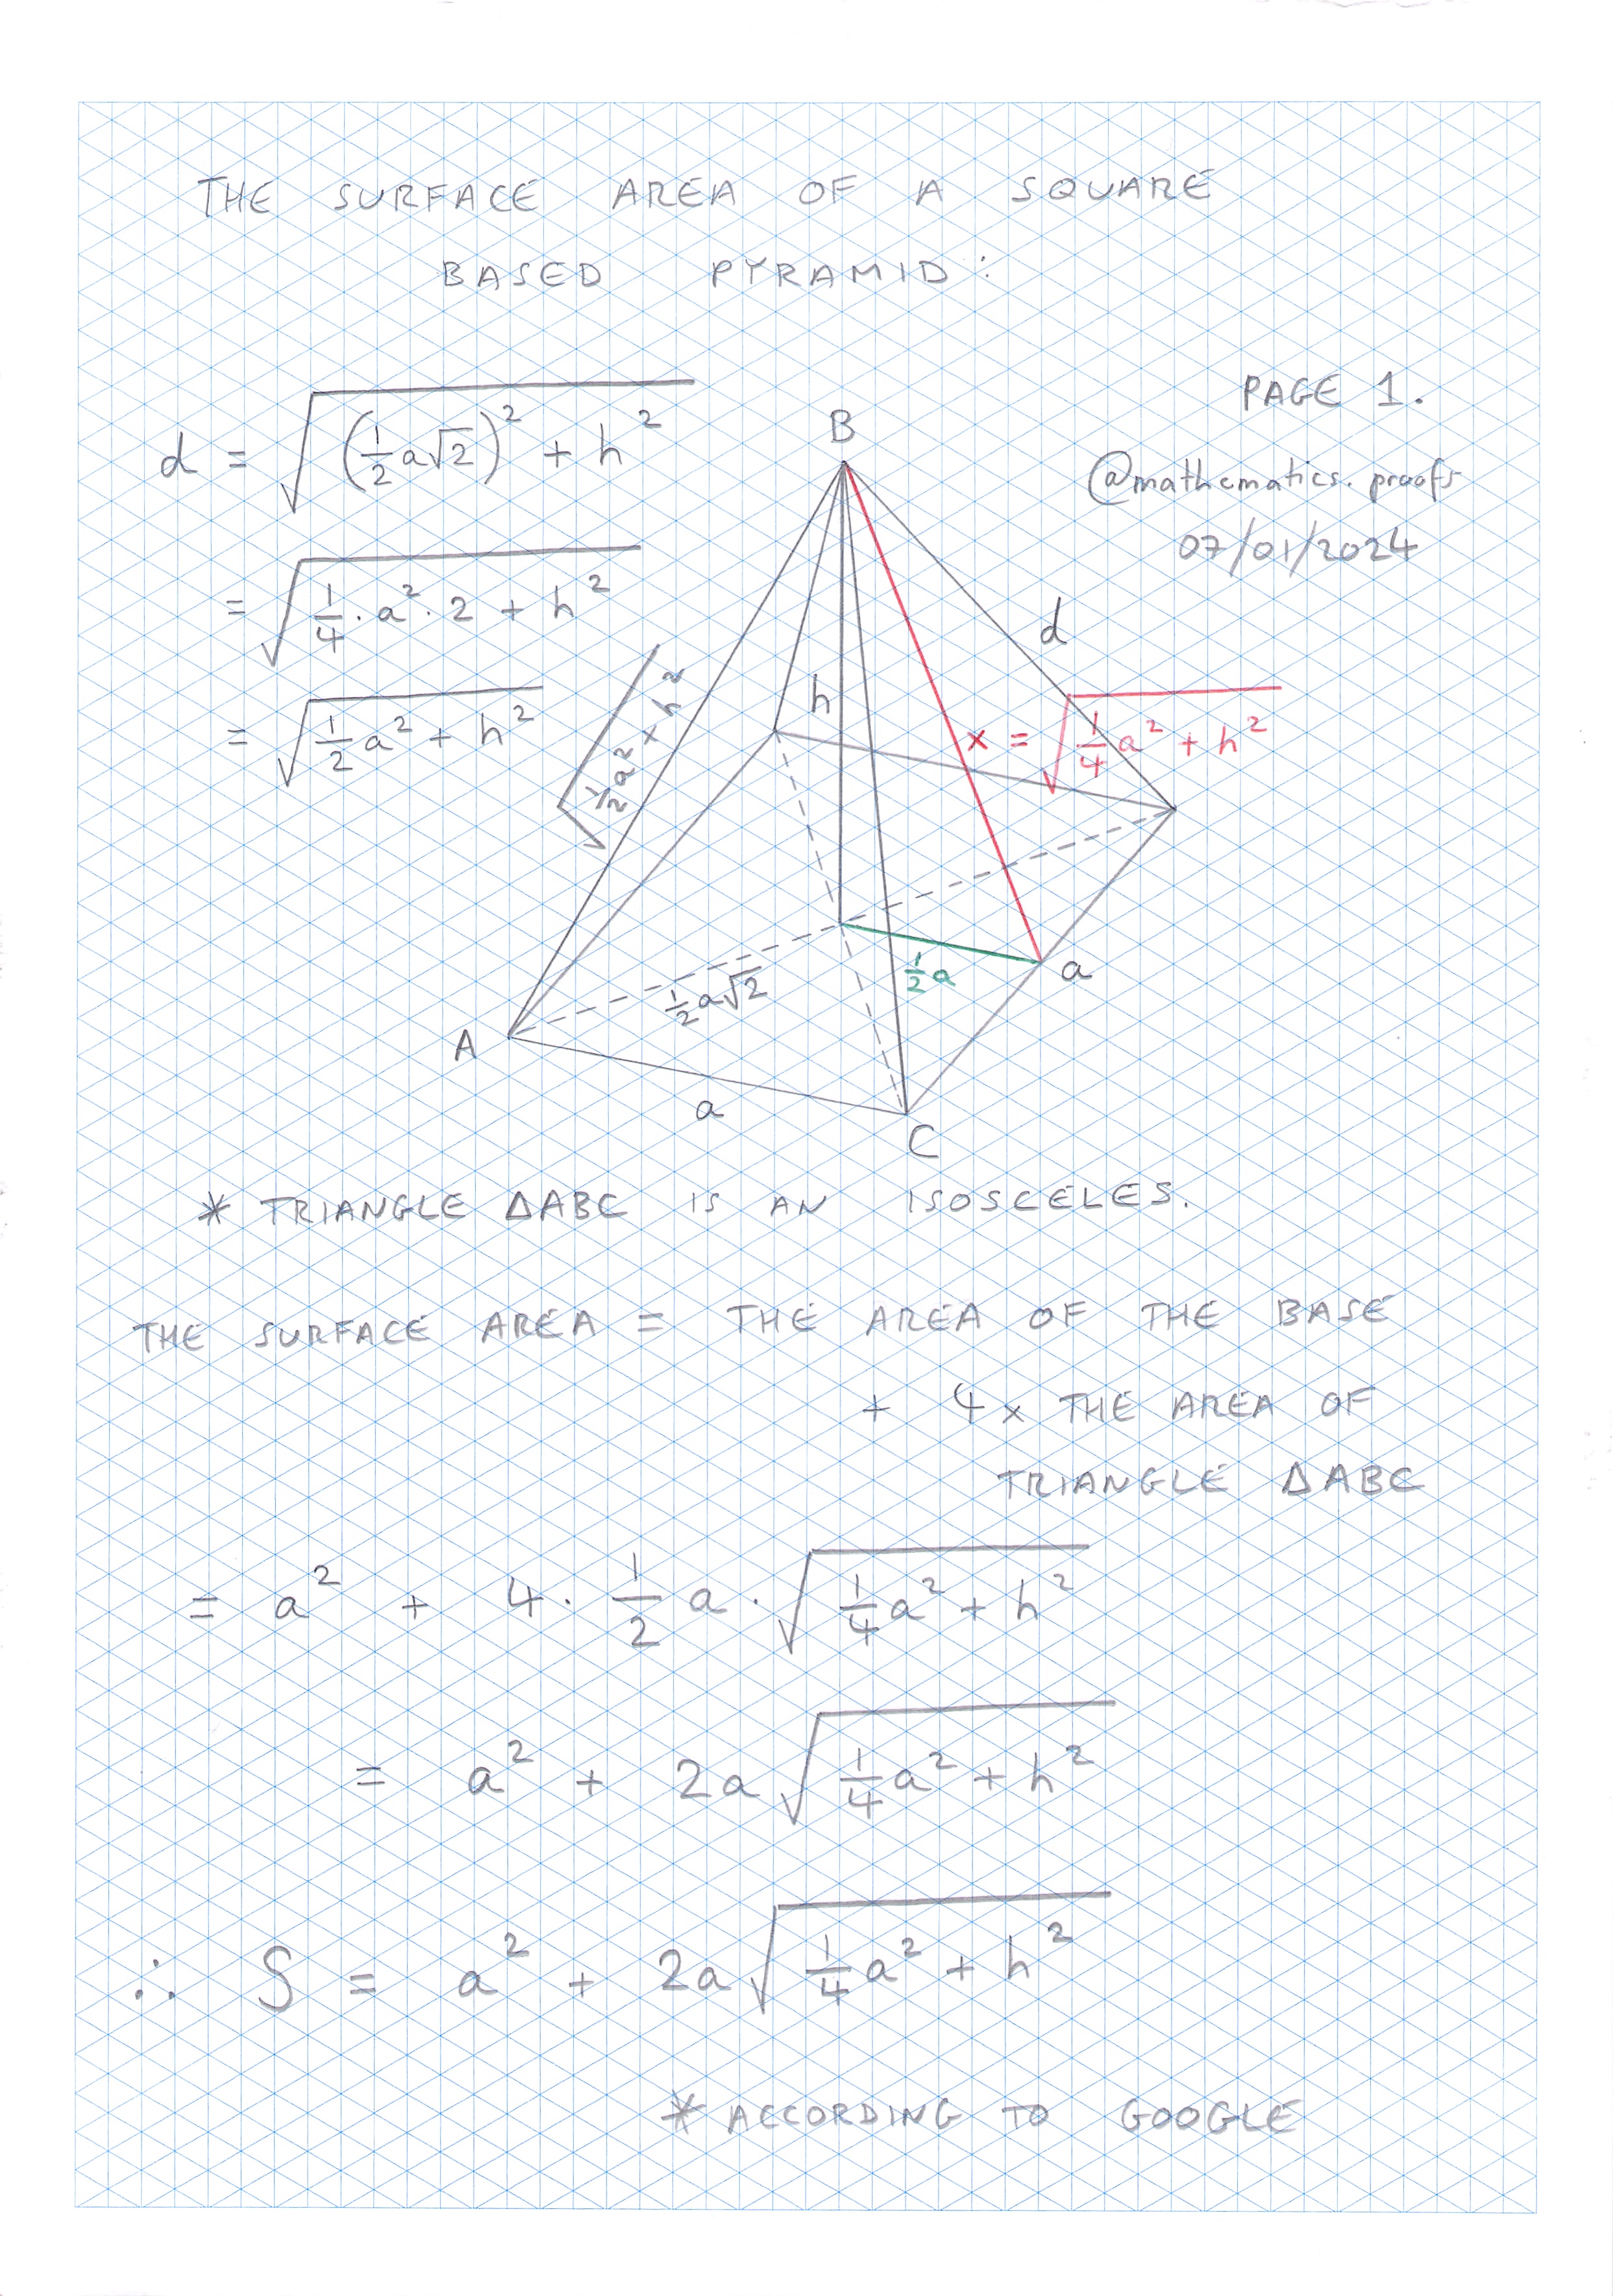 THE SURFACE AREA OF A SQUARE
BASED PYRAMID:
PAGE 1.
@mathematics.proofs
07/01/2024
d = √((1/2 a√2)² + h²)
= √(1/4 · a² · 2 + h²)
= √(1/2 a² + h²)
B
d
h
√(1/2 a² × h²)
x = √(1/4 a² + h²)
1/2 a
a
1/2 a√2
A
a
C
* TRIANGLE ΔABC IS AN ISOSCELES.
THE SURFACE AREA = THE AREA OF THE BASE
+ 4× THE AREA OF
TRIANGLE ΔABC
= a² + 4 · 1/2 a · √(1/4 a² + h²)
= a² + 2a √(1/4 a² + h²)
∴ S = a² + 2a √(1/4 a² + h²)
* ACCORDING TO GOOGLE